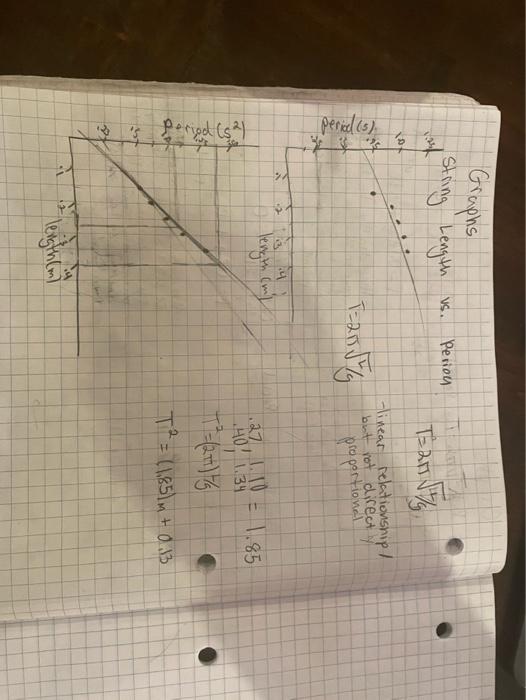 Graphs
String Length vs. Period
T²=2π√L/g
period (s)
1.25
1.0
.75
.50
.25
.1 .2 .3 .4
length (m)
T=2π√L/g
-linear relationship/
but not directly
proportional
Period (s²)
.1 .2 .3 .4
length(m)
.27, 1.10 = 1.85
.40, 1.34
T²=(2π)L/g
T² = (1.85)m + 0.13